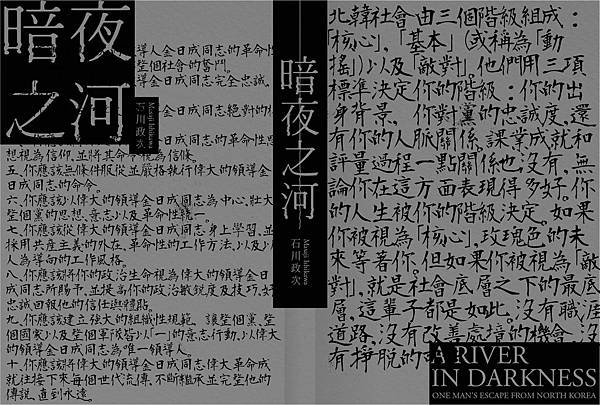 暗夜
之河
Masaji Ishikawa
石川政次
導人金日成同志的革命性
整個社會的奮鬥。
導金日成同志完全忠誠。
金日成同志絕對的
金日成同志的革命性思
想視為信仰,並將其命令視為信條。
五、你應該無條件服從並嚴格執行偉大的領導金
日成同志的命令。
六、你應該以偉大的領導金日成同志為中心,壯大
整個黨的思想、意志以及革命性統一。
七、你應該從偉大的領導金日成同志身上學習,並
採用共產主義的外在、革命性的工作方法,以及以
人為導向的工作風格。
八、你應該將你的政治生命視為偉大的領導金日
成同志所賜予,並提高你的政治敏銳度及技巧,好
忠誠回報他的信任與體貼。
九、你應該建立強大的組織性規範,讓整個黨、整
個國家以及整個軍隊皆以「一」的意志行動,以偉大
的領導金日成同志為唯一領導人。
十、你應該將偉大的領導金日成同志偉大革命成
就往接下來每個世代流傳,不斷繼承並完整他的
傳說,直到永遠。
暗夜之河
Masaji Ishikawa
石川政次
北韓社會由三個階級組成:
「核心」、「基本」(或稱為「動
搖」)以及「敵對」。他們用三項
標準決定你的階級:你的出
身背景,你對黨的忠誠度,還
有你的人脈關係。課業成就和
評量過程一點關係也沒有,無
論你在這方面表現得多好。你
的人生被你的階級決定。如果
你被視為「核心」,玫瑰色的未
來等著你。但如果你被視為「敵
對」,就是社會底層之下的最底
層,這輩子都是如此。沒有職涯
道路,沒有改善處境的機會,沒
有掙脫的
A RIVER
IN DARKNESS
ONE MAN'S ESCAPE FROM NORTH KOREA